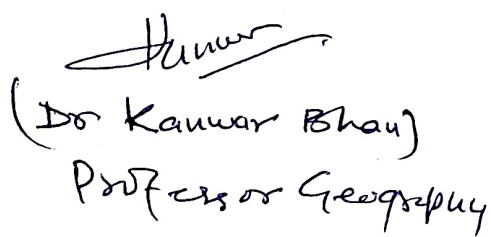 Kanwar
(Dr Kanwar Bhan)
Professor Geography